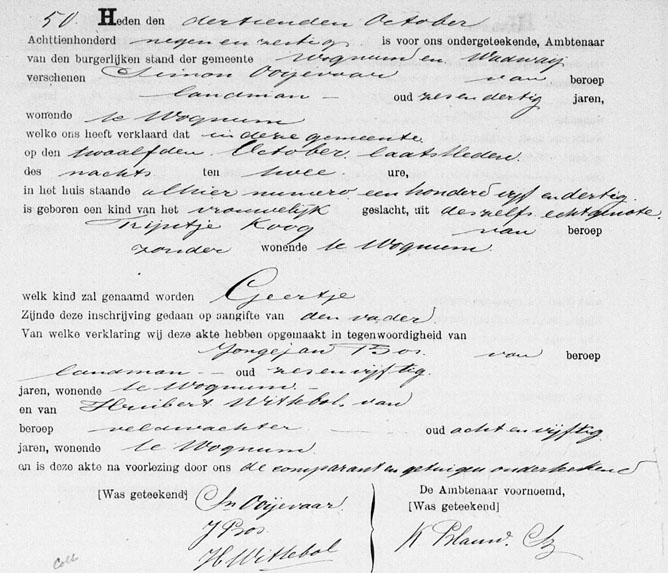 50. Heden den dertienden October
Achttienhonderd negen en zestig is voor ons ondergeteekende, Ambtenaar
van den burgerlijken stand der gemeente Wognum en Wadway
verschenen Simon Ooijevaar van beroep
landman — oud zes en dertig jaren,
wonende te Wognum
welke ons heeft verklaard dat in deze gemeente
op den twaalfden October laatstleden
des nachts ten twee ure,
in het huis staande alhier numero een honderd vijf en dertig
is geboren een kind van het vrouwelijk geslacht, uit deszelfs echtgenote
Trijntje Koog van beroep
zonder wonende te Wognum
welk kind zal genaamd worden Geertje
Zijnde deze inschrijving gedaan op aangifte van den vader.
Van welke verklaring wij deze akte hebben opgemaakt in tegenwoordigheid van
Jongejan Bos. van beroep
landman — oud zes en vijftig
jaren, wonende te Wognum —
en van Huibert Withebol. van
beroep veldwachter oud acht en vijftig
jaren, wonende te Wognum
en is deze akte na voorlezing door ons de comparant en getuigen onderteekend
[Was geteekend] Sn Ooijevaar
J Bos
H Withebol
De Ambtenaar voornoemd,
[Was geteekend]
K Blauw. Cz
Coll